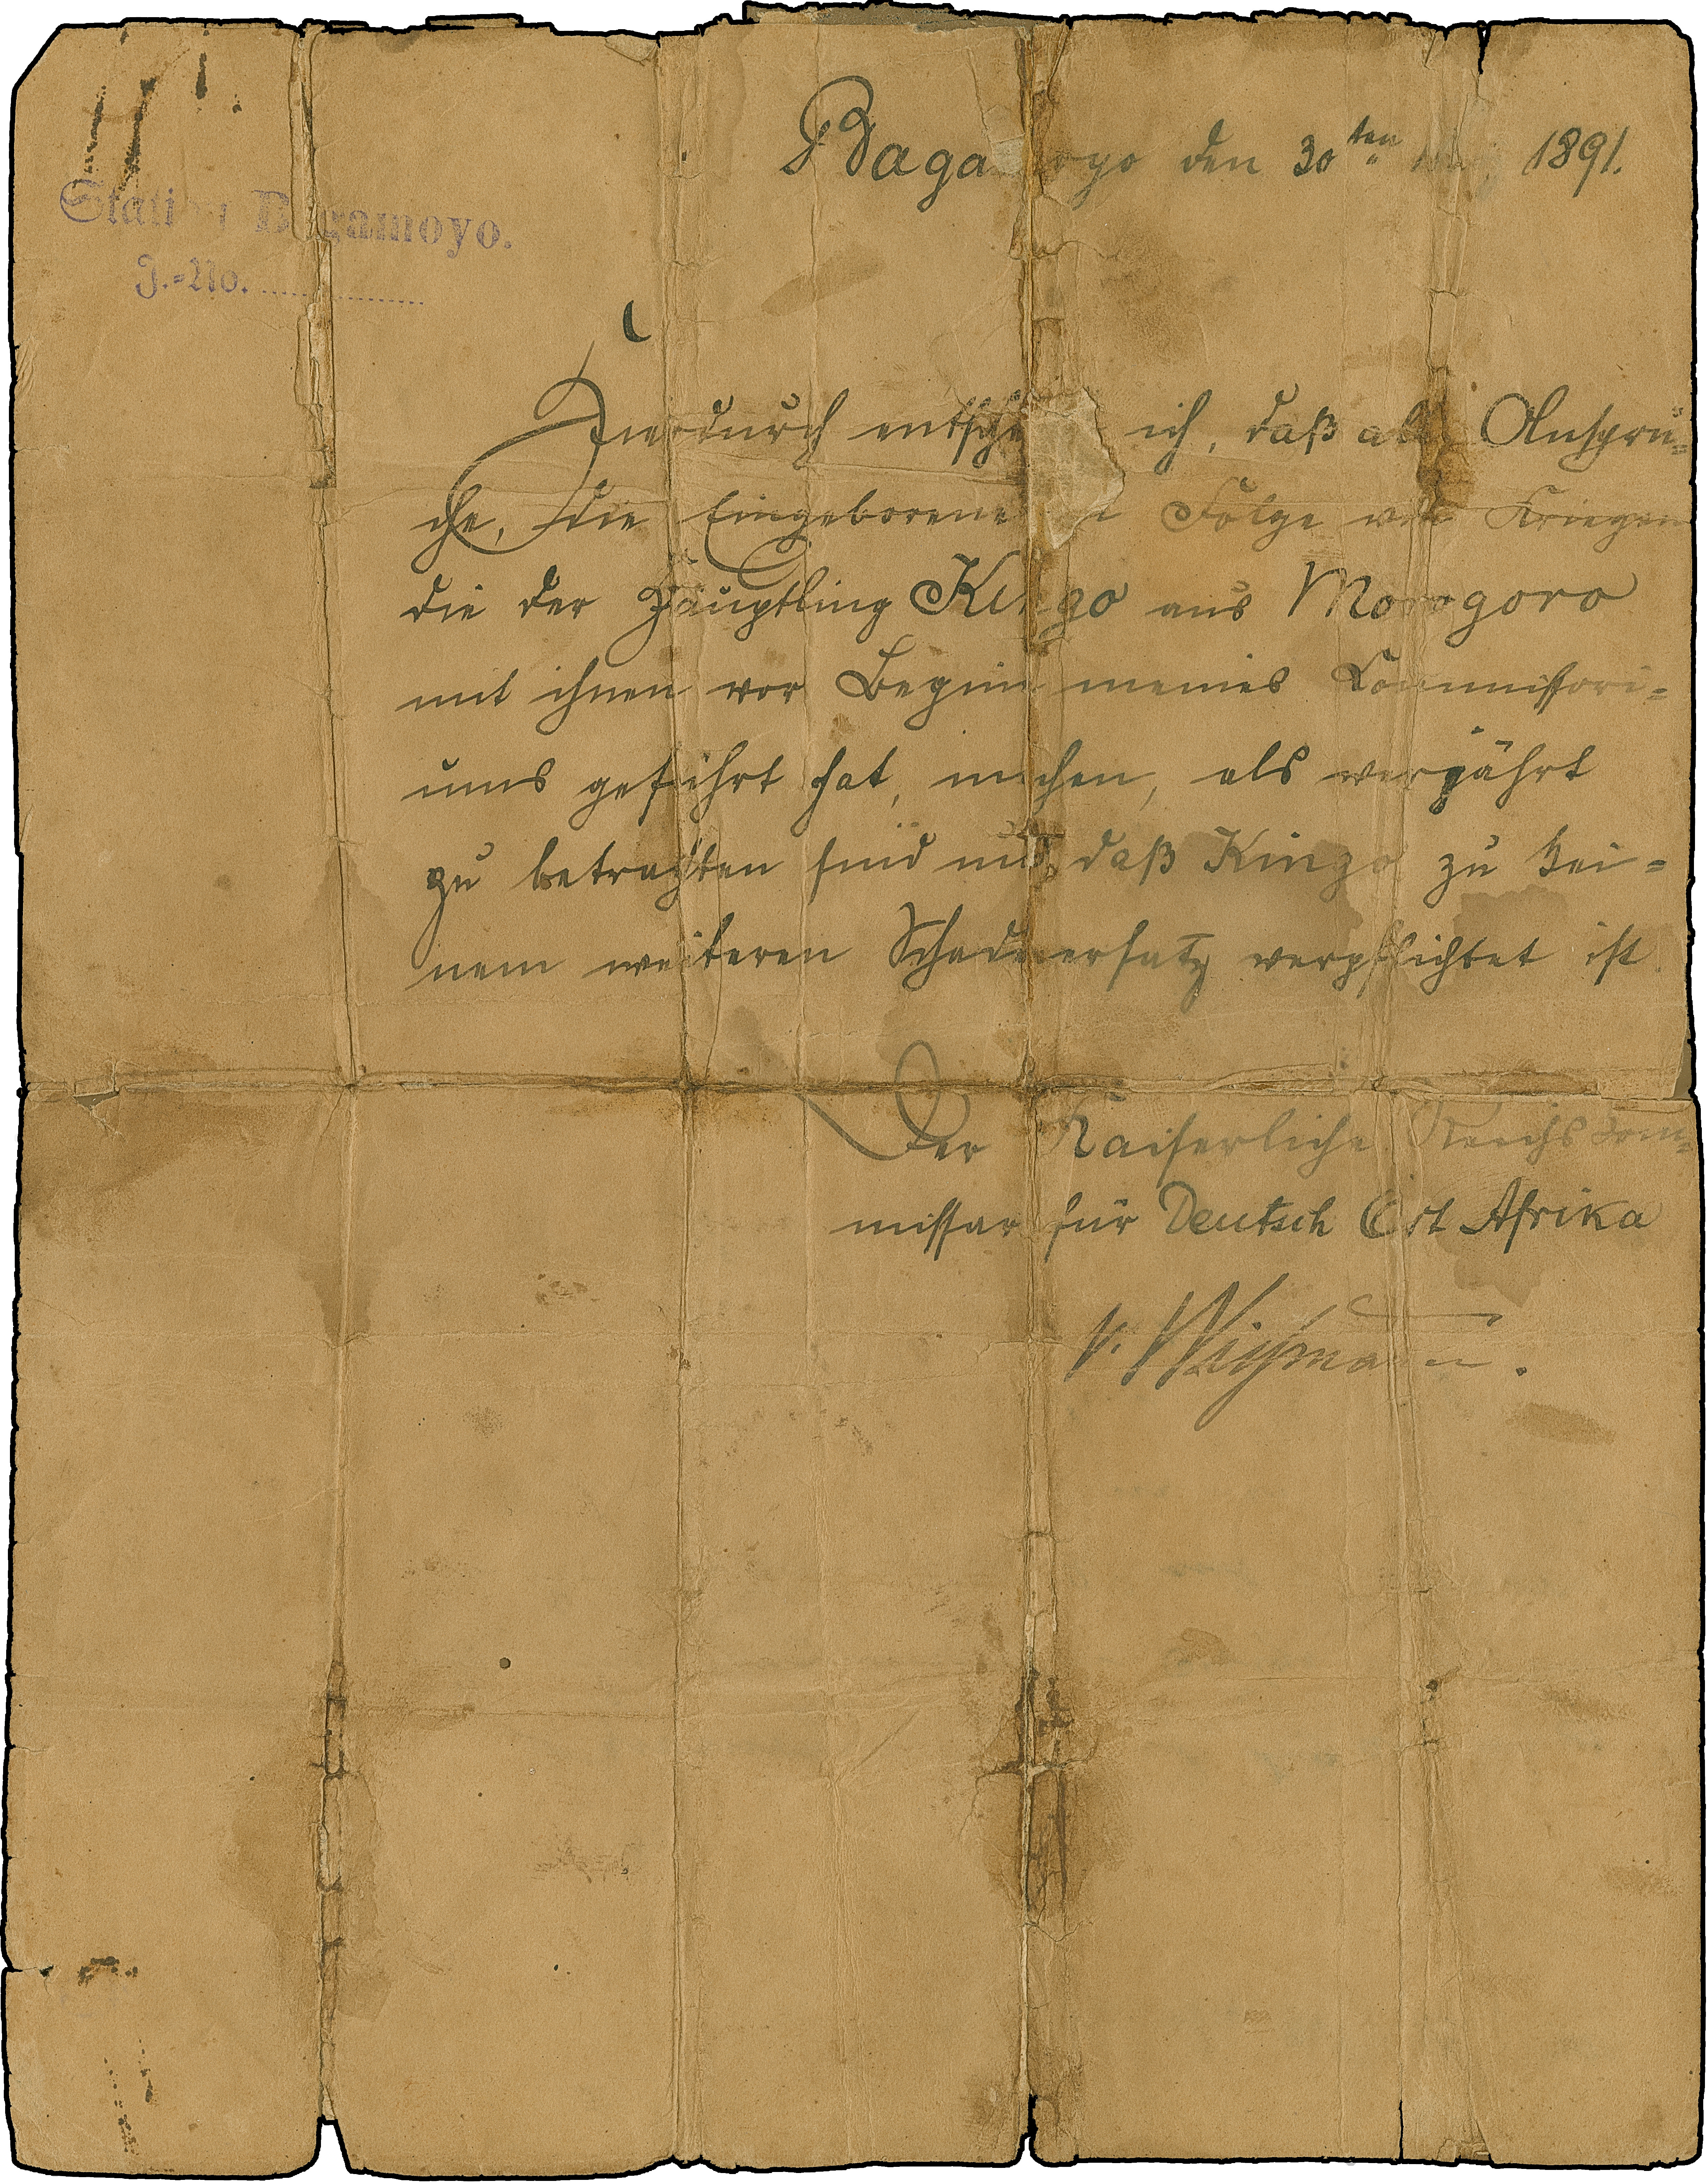 Station Bagamoyo.
J.-No.
Bagamoyo den 30ten 1891.
Hierdurch entscheide ich, daß alle Ansprü-
che, die Eingeborene in Folge von Kriegen
die der Häuptling Kingo aus Morogoro
mit ihnen vor Beginn meines Kommissori-
ums geführt hat, machen, als verjährt
zu betrachten sind und daß Kingo zu kei-
nem weiteren Schadenersatz verpflichtet ist.
Der Kaiserliche Reichskom-
missar für Deutsch Ost Afrika
v. Wissmann.